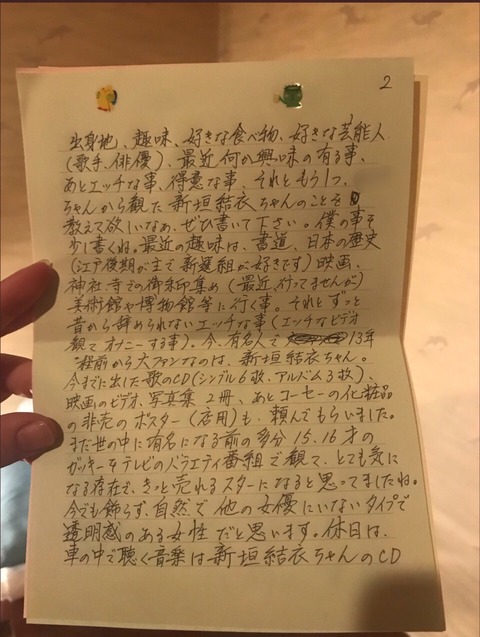 2
出身地、趣味、好きな食べ物、好きな芸能人
(歌手、俳優)、最近何か興味の有る事、
あとエッチな事、得意な事、それともう1つ、
ちゃんから観た新垣結衣ちゃんのことを
教えて欲しいなぁ、ぜひ書いて下さい。僕の事を
少し書くね。最近の趣味は、書道、日本の歴史
(江戸後期が主で新選組が好きです)映画、
神社寺での御朱印集め(最近、行ってませんが)
美術館や博物館等に行く事。それとずっと
昔から辞められないエッチな事(エッチなビデオ
観てオナニーする事)。今、有名人で 13年
程前から大ファンなのは、新垣結衣ちゃん。
今までに出した歌のCD(シングル6枚、アルバム3枚)、
映画のビデオ、写真集2冊、あとコーセーの化粧品
の非売のポスター(店用)も、頼んでもらいました。
まだ世の中に有名になる前の多分15、16才の
ガッキーをテレビのバラエティ番組で観て、とても気に
なる存在で、きっと売れるスターになると思ってましたね。
今でも飾らず、自然で他の女優にいないタイプで
透明感のある女性だと思います。休日は、
車の中で聴く音楽は新垣結衣ちゃんのCD